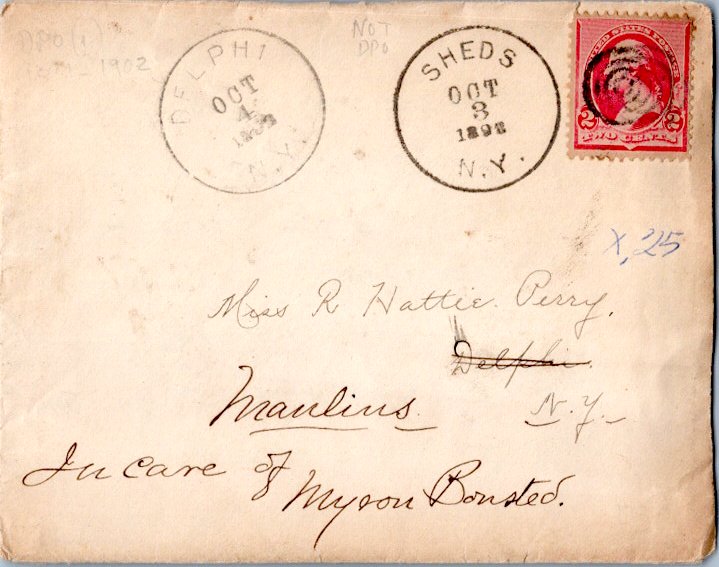 DPO (1)
- 1902
NOT
DPO
DELPHI
OCT
4
N.Y.
SHEDS
OCT
3
1893
N.Y.
UNITED STATES POSTAGE
2 2
TWO CENTS
X.25
Miss R Hattie Perry.
Delphi.
Manlius N.Y.
In care of Myron Bonsted.